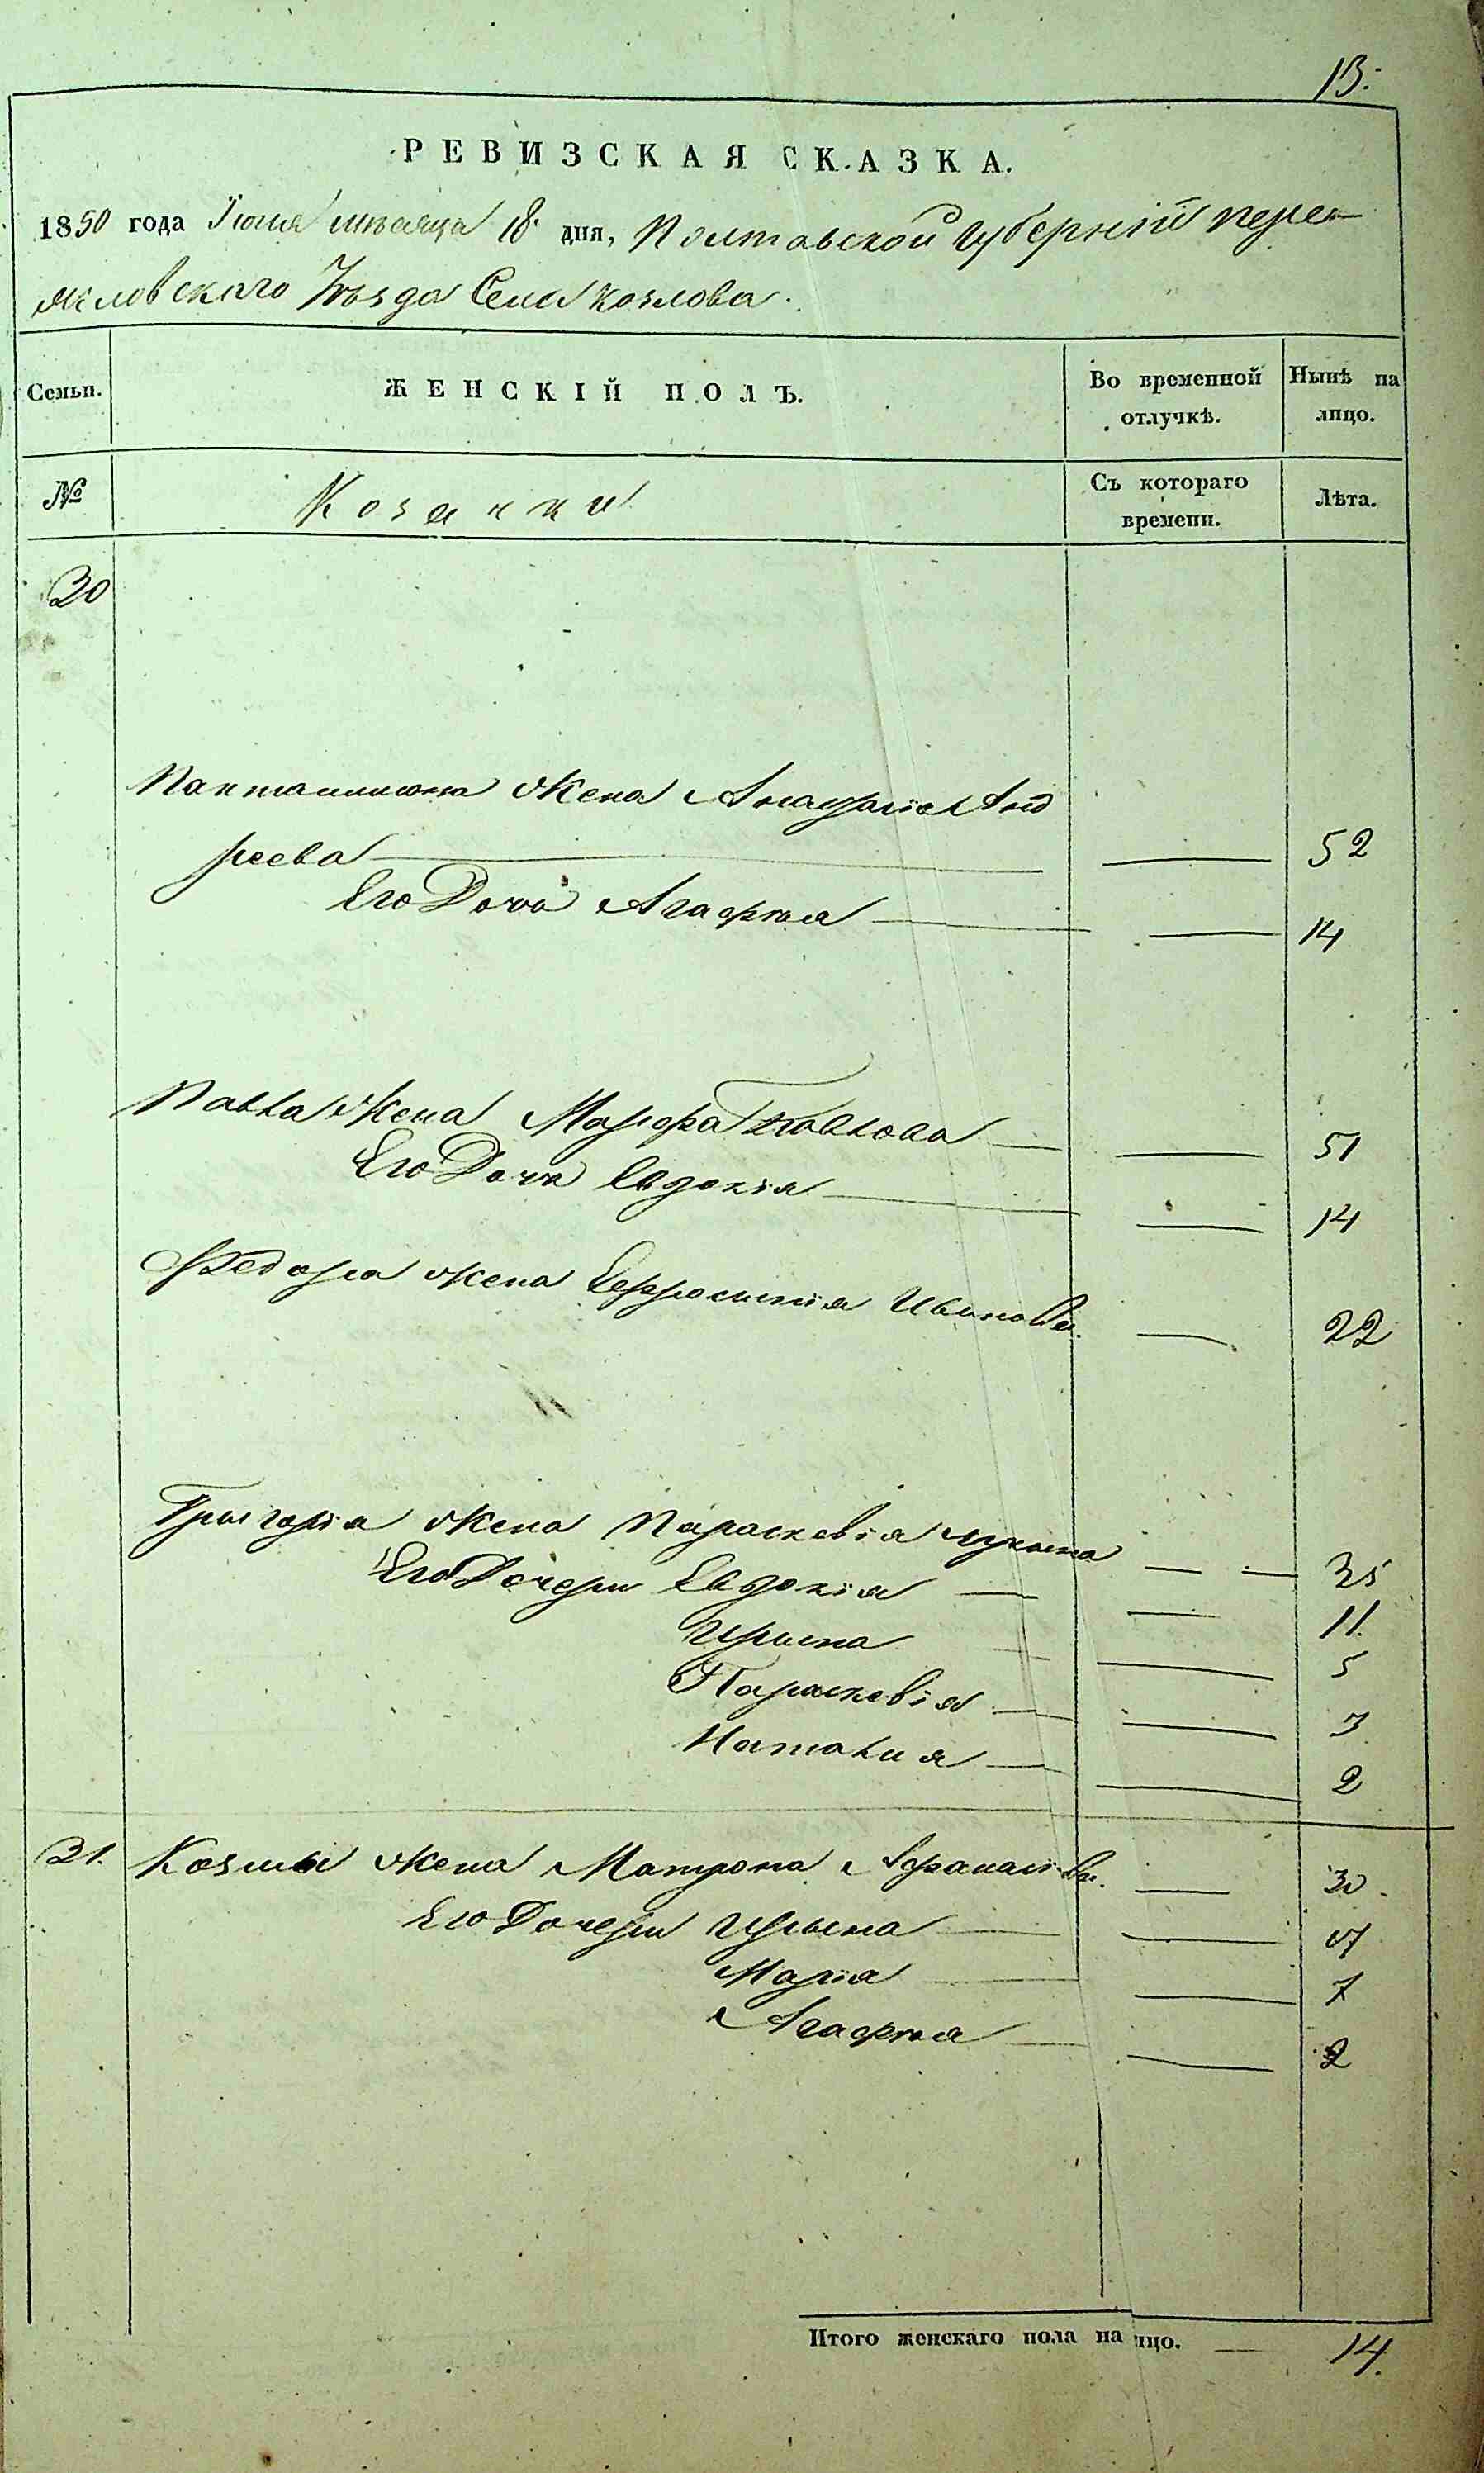 13.
РЕВИЗСКАЯ СКАЗКА.
1850 года Іюня мѣсяца 18 дня, Полтавской губерніи пере-
яславскаго Уѣзда Села козлова.
Семьи.
ЖЕНСКІЙ ПОЛЪ.
Во временной отлучкѣ.
Нынѣ на лицо.
№
Козачки
Съ котораго времени.
Лѣта.
20
Панталимона жена Анастасія Анд
реева 52
Его Дочь Агафія 14
Павла жена Марфа Павлова 51
Его Дочь Евдокія 14
Федора жена Евфросинія Иванова. 22
Григорія жена Параскевія 35
Его Дочери Евдокія 11.
Ирина 5
Параскевія 3
Наталия 2
21. Козмы жена Матрона Афанасіева. 30.
Его Дочери Ирина
Марія 7
Агафія 2
Итого женскаго пола на лицо. 14.